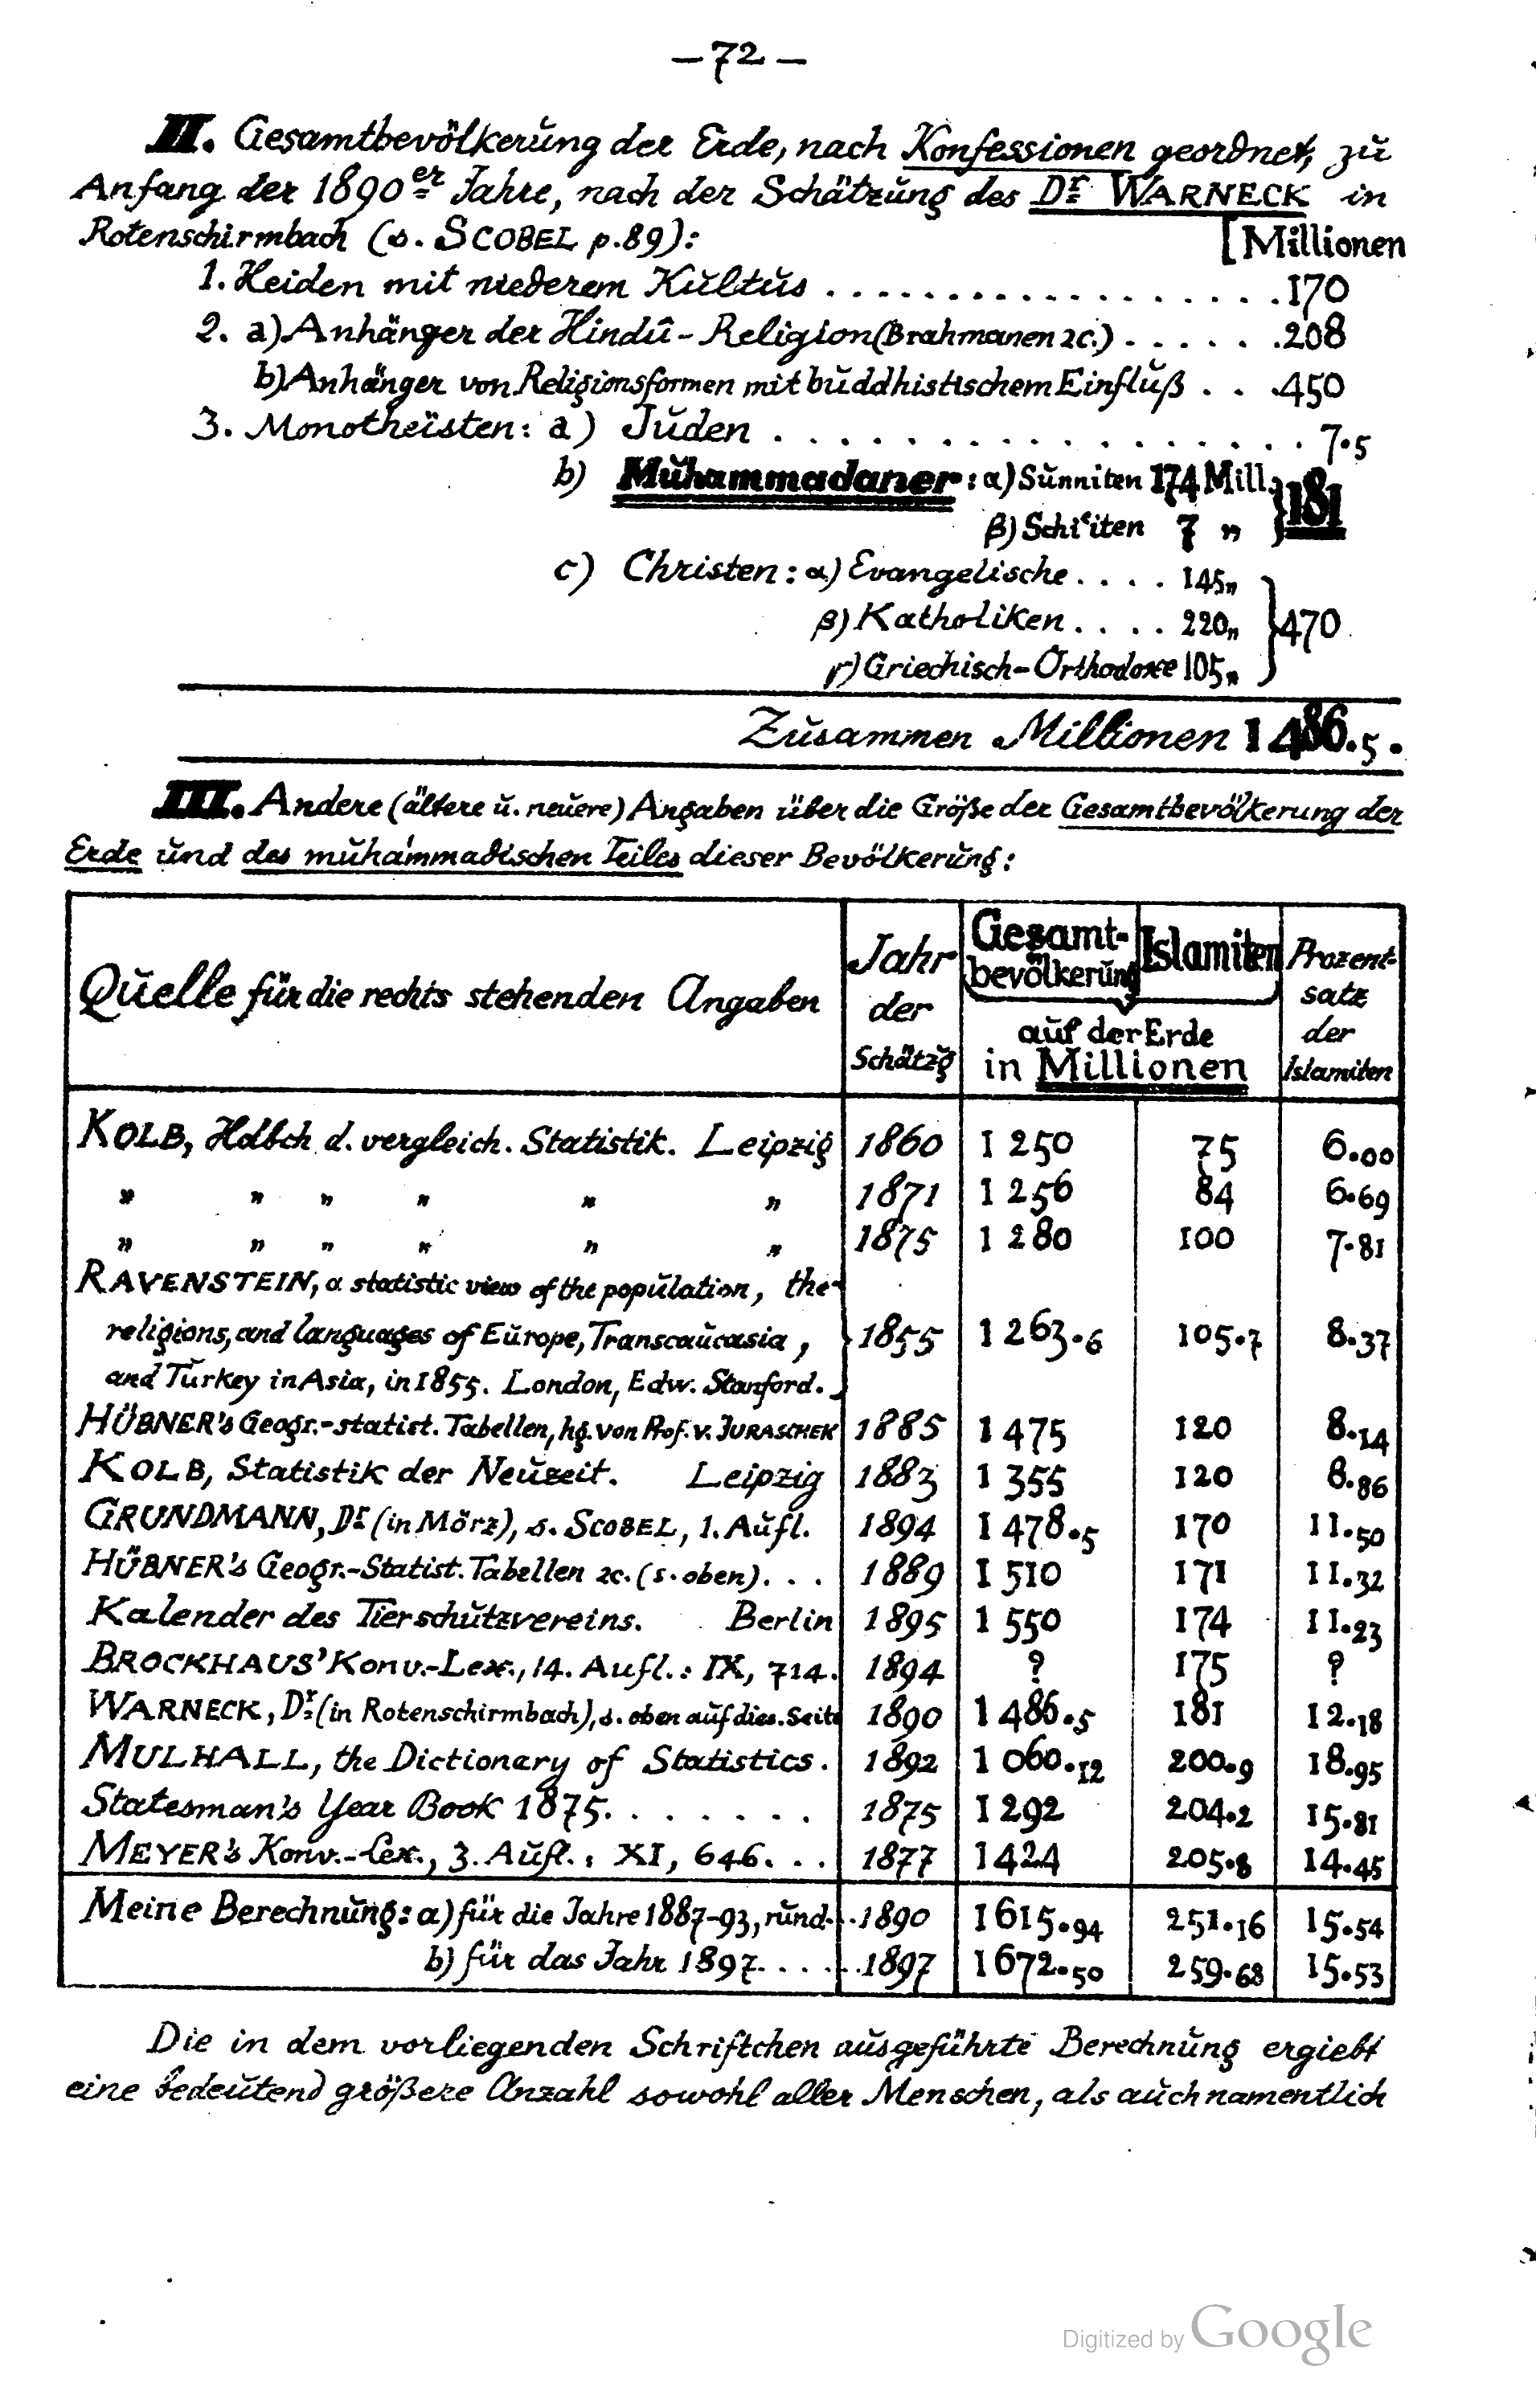 — 72 —
II. Gesamtbevölkerung der Erde, nach Konfessionen geordnet, zu
Anfang der 1890er Jahre, nach der Schätzung des Dr. WARNECK in
Rotenschirmbach (s. SCOBEL p. 89): [Millionen
1. Heiden mit niederem Kultus . . . . . . . . . . . . . . . . . . . 170
2. a) Anhänger der Hindû-Religion (Brahmanen 2c.) . . . . . . . 208
b) Anhänger von Religionsformen mit buddhistischem Einfluß . . . 450
3. Monotheïsten: a) Juden . . . . . . . . . . . . . . . . . . 7.5
b) Muhammadaner: α) Sunniten 174 Mill. } 181
β) Schi'iten 7 "
c) Christen: α) Evangelische . . . . 145 "
β) Katholiken . . . . 220 " } 470
γ) Griechisch-Orthodoxe 105 "
Zusammen Millionen 1486.5.
III. Andere (ältere u. neuere) Angaben über die Größe der Gesamtbevölkerung der
Erde und des muhámmadischen Teiles dieser Bevölkerung:
Quelle für die rechts stehenden Angaben | Jahr der Schätzg | Gesamt-bevölkerung | Islamiten | auf der Erde in Millionen | Prozent-satz der Islamiten
KOLB, Hdbch d. vergleich. Statistik. Leipzig | 1860 | 1 250 | 75 | 6.00
" " " " " " | 1871 | 1 256 | 84 | 6.69
" " " " " " | 1875 | 1 280 | 100 | 7.81
RAVENSTEIN, a statistic view of the population, the
religions, and languages of Europe, Transcaucasia, } 1855 | 1 263.6 | 105.7 | 8.37
and Turkey in Asia, in 1855. London, Edw. Stanford.
HÜBNER's Geogr.-statist. Tabellen, hg. von Prof. v. JURASCHEK | 1885 | 1 475 | 120 | 8.14
KOLB, Statistik der Neuzeit. Leipzig | 1883 | 1 355 | 120 | 8.86
GRUNDMANN, Dr. (in Mörz), s. SCOBEL, 1. Aufl. | 1894 | 1 478.5 | 170 | 11.50
HÜBNER's Geogr.-Statist. Tabellen 2c. (s. oben) . . . | 1889 | 1 510 | 171 | 11.32
Kalender des Tierschutzvereins. Berlin | 1895 | 1 550 | 174 | 11.23
BROCKHAUS' Konv.-Lex., 14. Aufl.: IX, 714. | 1894 | ? | 175 | ?
WARNECK, Dr. (in Rotenschirmbach), s. oben auf dies. Seite | 1890 | 1 486.5 | 181 | 12.18
MULHALL, the Dictionary of Statistics. | 1892 | 1 060.12 | 200.9 | 18.95
Statesman's Year Book 1875. . . . . . . | 1875 | 1 292 | 204.2 | 15.81
MEYER's Konv.-Lex., 3. Aufl.: XI, 646. . . | 1877 | 1424 | 205.8 | 14.45
Meine Berechnung: a) für die Jahre 1887-93, rund . . 1890 | 1615.94 | 251.16 | 15.54
b) für das Jahr 1897. . . . . . 1897 | 1672.50 | 259.68 | 15.53
Die in dem vorliegenden Schriftchen ausgeführte Berechnung ergiebt
eine bedeutend größere Anzahl sowohl aller Menschen, als auch namentlich
Digitized by Google